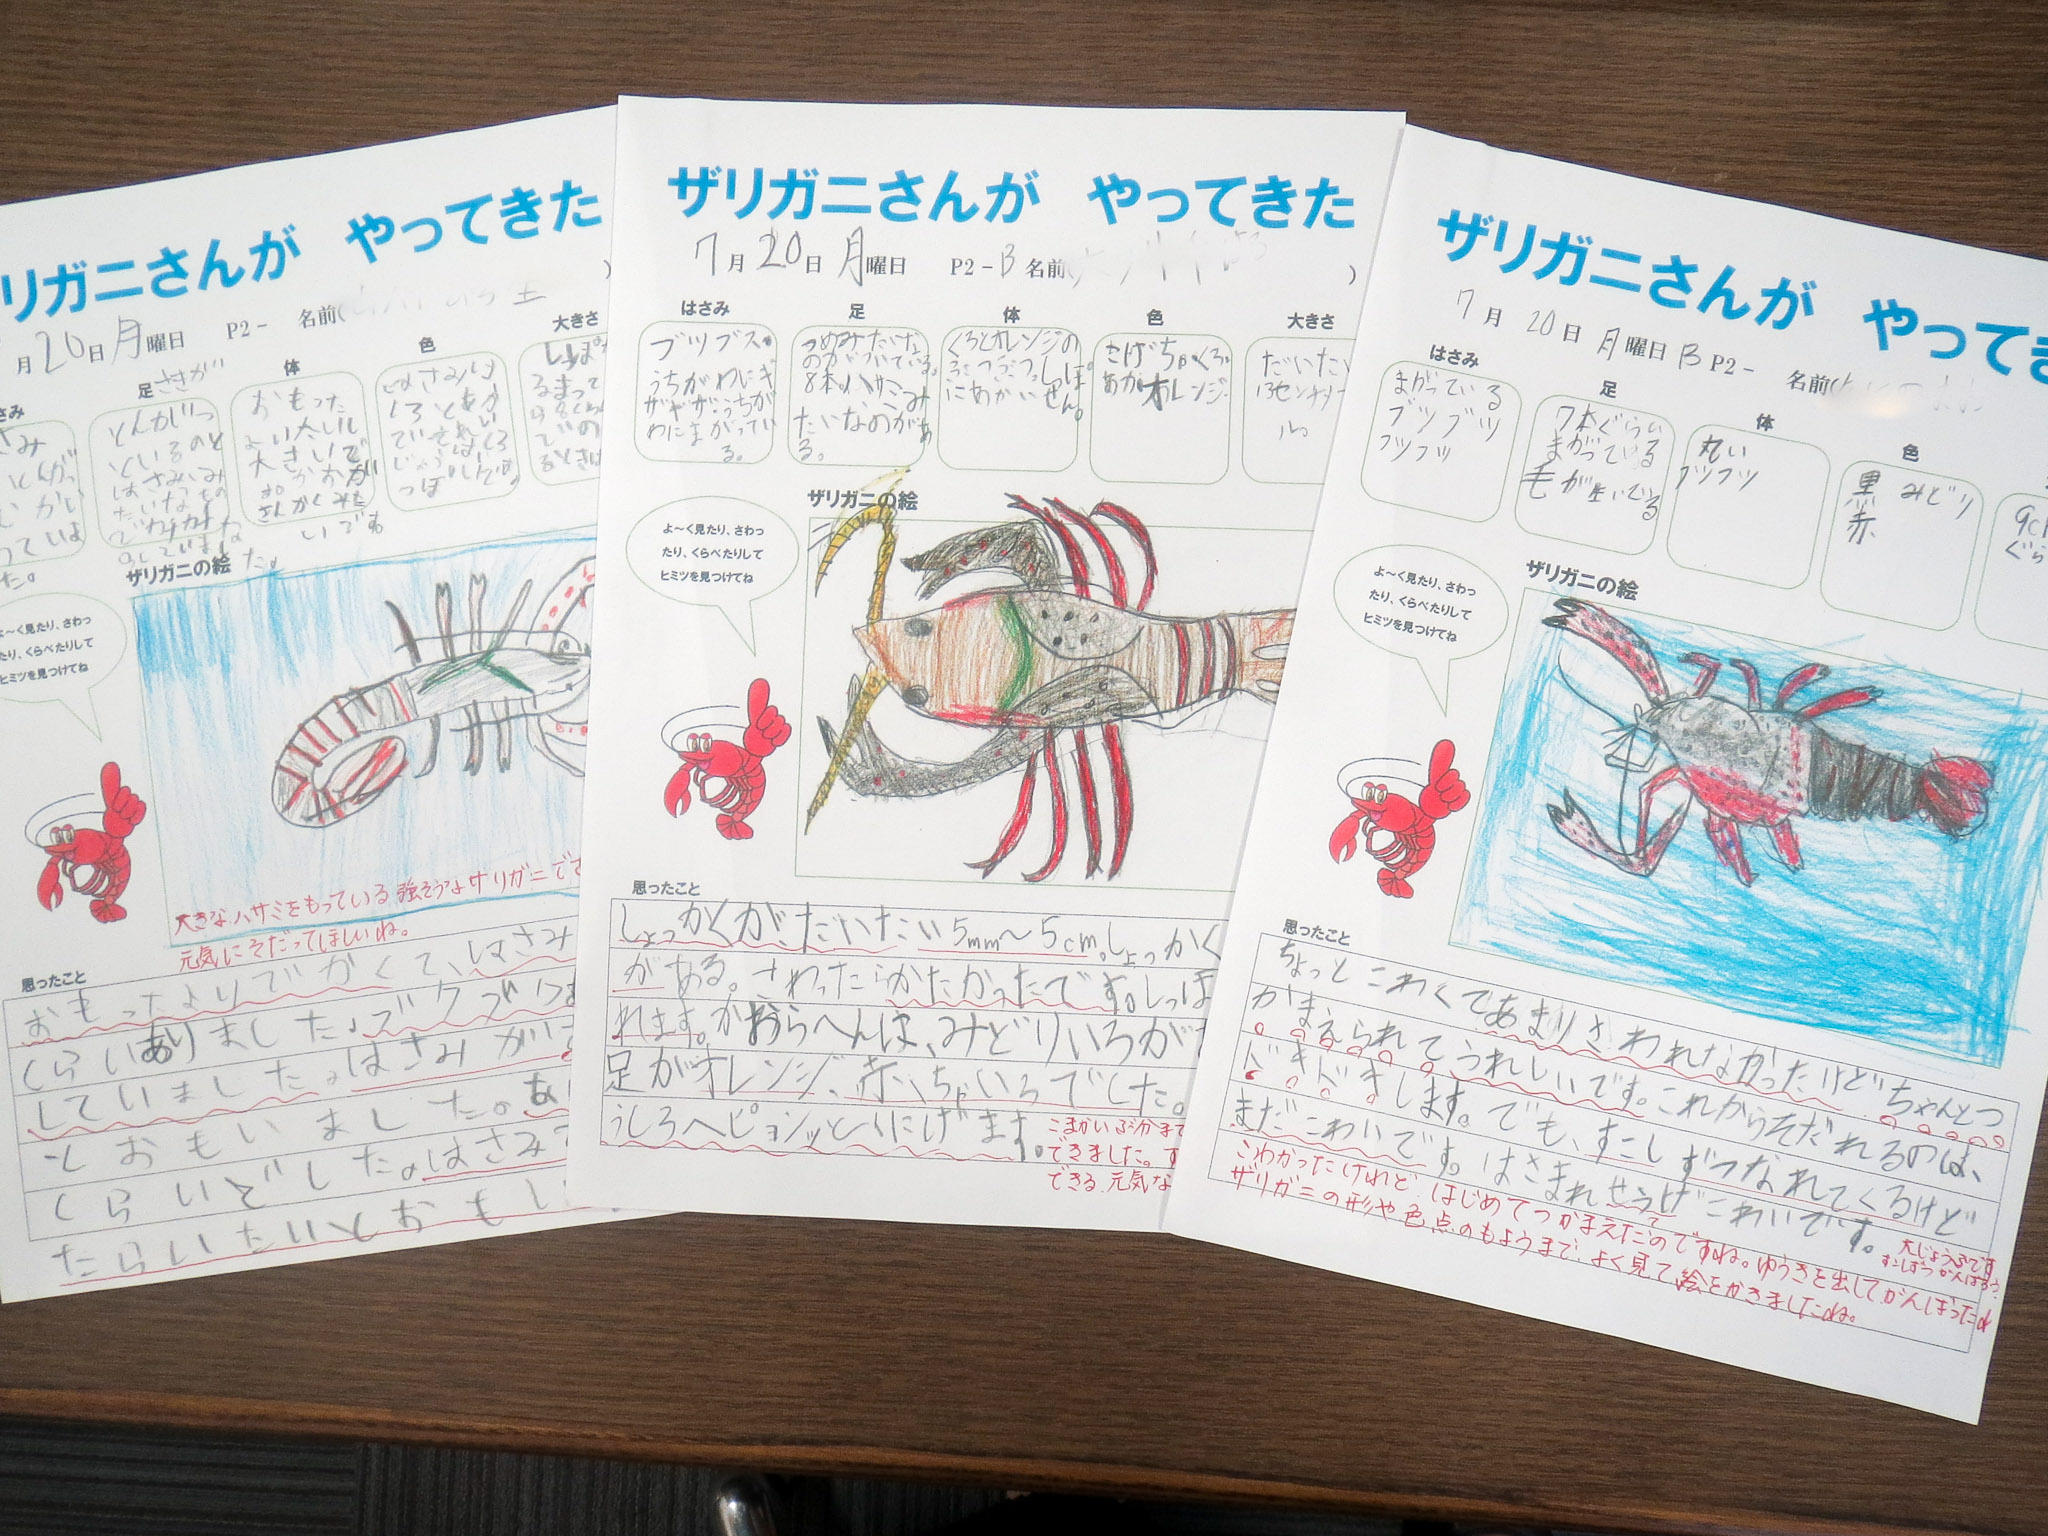 リガニさんが やってきた
月20日月曜日 P2- 名前(
さみ
足
体
色
大きさ
さきが
とんがっ
ているのと
はさみみ
たいなもの
おもった
より大い
大きいで
いです
はさみは
くろとあか
ザリガニの絵
大きなハサミをもっている強そうなザリガニで
元気にそだってほしいね。
思ったこと
おもったよりでかくて、はさみ
くらいありました。ブツブツ
していました。はさみが
とおもいました。あ
くらいでした。はさみ
たらいたいとおもし
ザリガニさんが やってきた
7月20日月曜日 P2-B 名前( )
はさみ
足
体
色
大きさ
ブツブス。
うちがわにギ
ザギザ。うちが
わにまがってい
る。
つめみたいな
のがついている。
8本。ハサミみ
たいなのがあ
る。
くろとオレンジの
にあかい
こげちゃ。くろ。
あか。オレンジ。
だいたい
13センチメート
ル
ザリガニの絵
よ〜く見たり、さわっ
たり、くらべたりして
ヒミツを見つけてね
思ったこと
しょっかくが、だいたい5mm〜5cm。しょっかく
がある。さわったらかたかったです。しっぽ
れます。かおらへんは、みどりいろが
足がオレンジ、赤、ちゃいろでした。
うしろへピョンッとにげます。
こまかいぶ分まで
できました。す
できる、元気な
ザリガニさんが やってき
7月20日月曜日BP2- 名前(
はさみ
足
体
色
まがっている
ブツブツ
フツフツ
7本ぐらい
まがっている
毛が生いている
丸い
フツフツ
黒 みどり
赤
9cm
ぐら
ザリガニの絵
よ〜く見たり、さわっ
たり、くらべたりして
ヒミツを見つけてね
思ったこと
ちょっとこわくてあまりさわれなかったけどちゃんとつ
かまえられてうれしいです。これからそだれるのは、
ドキドキします。でも、すこしずつなれてくるけど
まだこわいです。はさまれそうでこわいです。
こわかったけれど、はじめてつかまえたのですね。ゆうきを出してがんばったね
ザリガニの形や色、点のもようまで、よく見て絵をかきましたね。
大じょうぶです
すこしずつがんばろう。
よ〜く見たり、さわっ
たり、くらべたりして
ヒミツを見つけてね